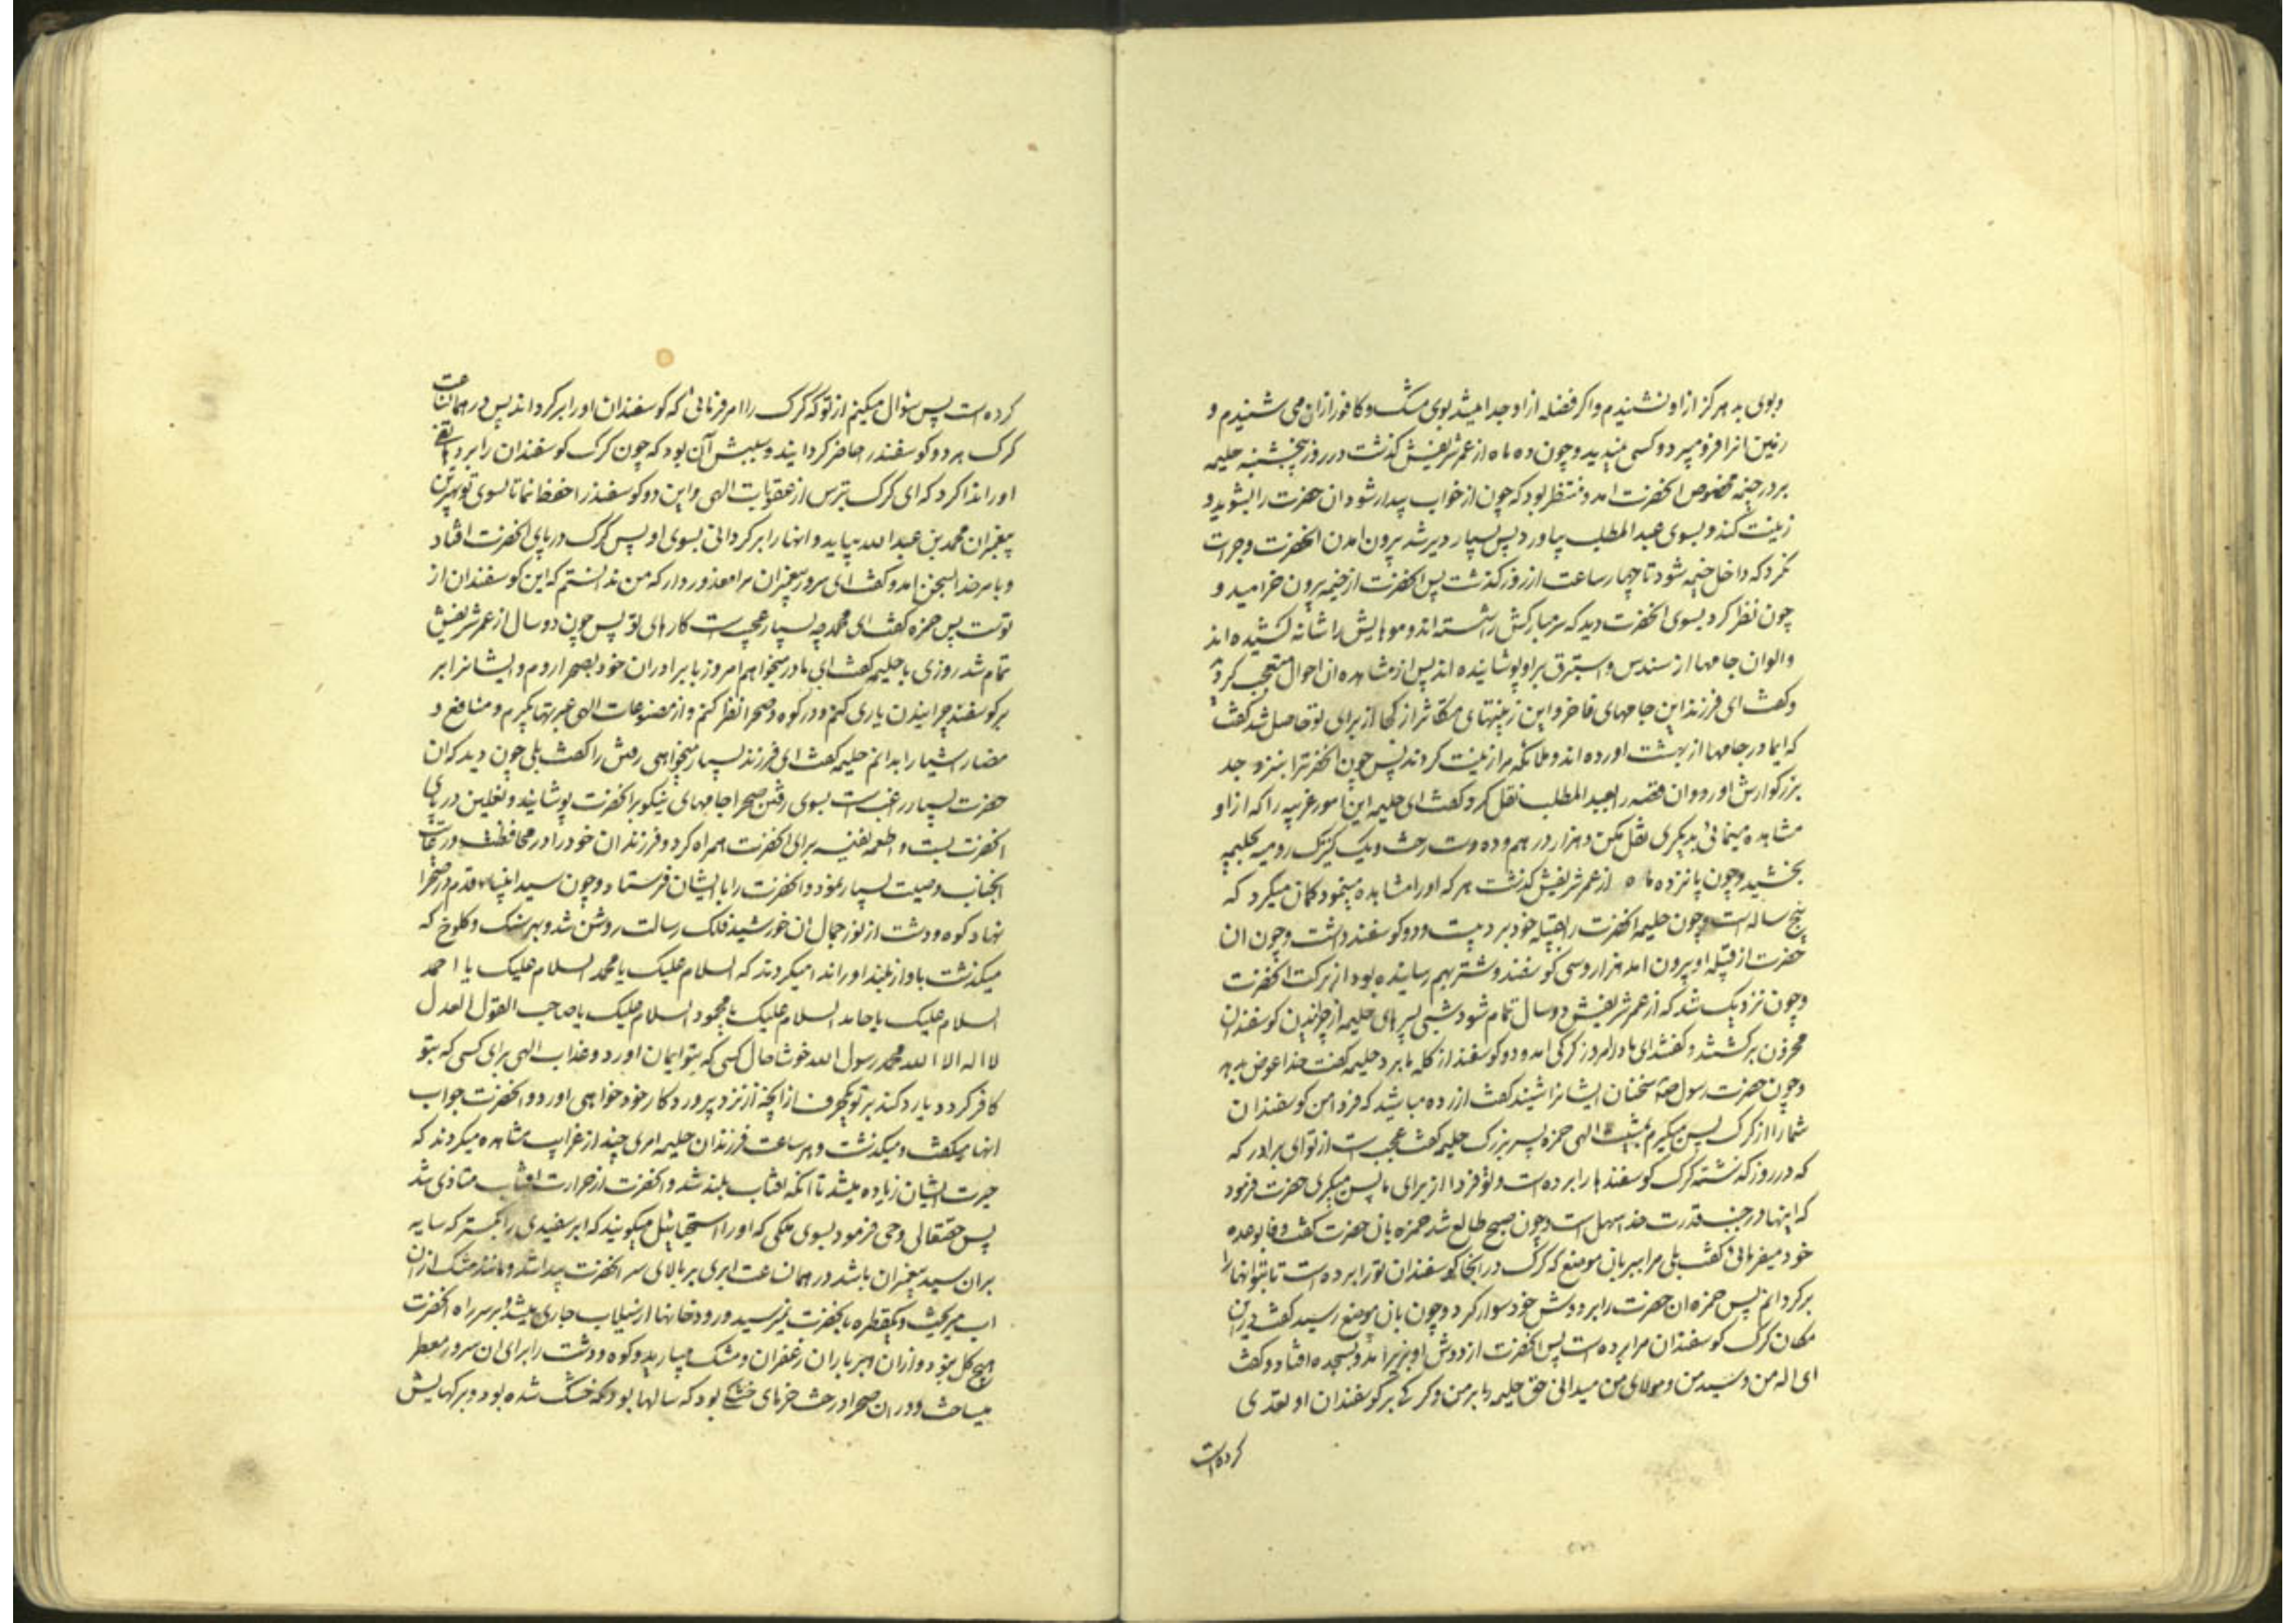 وبوی بد هرکز از او نشنیدم واکر فضله از او جدا میشد بوی مشک وکافور ازان می شنیدم و
زمین انرا فرو میبرد وکسی نمیدید وچون ده ماه از عمر شریفش کذشت در روز پنجشنبه حلیمه
بر در خیمه مخصوص انحضرت امد ومنتظر بود که چون از خواب بیدار شود ان حضرت را بشوید و
زینت کند وبسوی عبد المطلب بیاورد پس بسیار دیر شد بیرون امدن انحضرت وجرات
نکرد که داخل خیمه شود تا چهار ساعت از روز کذشت پس انحضرت از خیمه بیرون خرامید و
چون نظر کرد بسوی انحضرت دید که سر مبارکش را شسته اند وموهایش را شانه کشیده اند
والوان جامها از سندس و استبرق بر او پوشانیده اند پس از مشاهده ان احوال متعجب کردید
وکفت ای فرزند این جامهای فاخر واین زینتهای متکاثر از کجا از برای تو حاصل شد کفت
که ای مادر جامها از بهشت اورده اند وملائکه مرا زینت کردند پس چون انحضرترا بنزد جد
بزرکوارش اورد وان قصه را بعبد المطلب نقل کرد کفت ای حلیمه این امور غریبه را که از او
مشاهده مینمائی بدیکری نقل مکن وهزار درهم وده دست رخت ویک کنیزک رومیه بحلیمه
بخشید وچون پانزده ماه از عمر شریفش کذشت هر که اورا مشاهده مینمود کمان میکرد که
پنج ساله است وچون حلیمه انحضرت را بقبیله خود برد بیست ودو کوسفند داشت وچون ان
حضرت از قبیله او بیرون امد هزار وسی کوسفند وشتر بهم رسانیده بود از برکت انحضرت
وچون نزدیک شد که از عمر شریفش دو سال تمام شود شبی پسرهای حلیمه از چرانیدن کوسفندان
محزون برکشتند وکفتند ای مادر امروز کرکی امد ودو کوسفند از کله ما برد حلیمه کفت خدا عوض بدهد
وچون حضرت رسول ص سخنان ایشانرا شنید کفت ازرده مباشید که فردا من کوسفندان
شمارا از کرک پس میکیرم بمشیت الهی حمزه پسر بزرک حلیمه کفت عجب است از تو ای برادر که
که در روز کذشته کرک کوسفندها را برده است وتو فردا از برای ما پس میکیری حضرت فرمود
که اینها در جنب قدرت خدا سهل است وچون صبح طالع شد حمزه بان حضرت کفت وفا بوعده
خود میفرمائی کفت بلی مرا ببر بان موضع که کرک در انجا کوسفندان تورا برده است تا بتو انهارا
برکردانم پس حمزه ان حضرت را بر دوش خود سوار کرد وچون بان موضع رسید کفت در این
مکان کرک کوسفندان مرا برده است پس انحضرت از دوش او بزیر امد وبسجده افتاد وکفت
ای اله من وسید من ومولای من میدانی حق حلیمه را بر من وکرکی بر کوسفندان او تعدی
کرده است
کرده است پس سؤال میکنم از تو که کرک را امر فرمائی که کوسفندان اورا برکرداند پس در همان ساعت
کرک هر دو کوسفند را حاضر کردانید وسببش آن بود که چون کرک کوسفندان را برد هاتفی
اورا ندا کرد که ای کرک بترس از عقوبات الهی واین دو کوسفند را حفظ نما تا بسوی تو بهترین
پیغمبران محمد بن عبد الله بیاید وانها را برکردانی بسوی او پس کرک در پای انحضرت افتاد
وبامر خدا بسخن امد وکفت ای سرور پیغمبران مرا معذور دار که من ندانستم که این کوسفندان از
توست پس حمزه کفت ای محمد چه بسیار عجیب است کارهای تو پس چون دو سال از عمر شریفش
تمام شد روزی با حلیمه کفت ای مادر میخواهم امروز با برادران خود بصحرا روم وایشانرا بر
بر کوسفند چرانیدن یاری کنم ودر کوه وصحرا نظر کنم واز مصنوعات الهی عبرتها بکیرم ومنافع و
مضار اشیا را بدانم حلیمه کفت ای فرزند بسیار میخواهی رفتن را کفت بلی چون دید که ان
حضرت بسیار راغب است بسوی رفتن صحرا جامهای نیکو بر انحضرت پوشانید ونعلین در پای
انحضرت بست واطعمه نفیسه برای انحضرت همراه کرد وفرزندان خود را در محافظت ورعایت
انجناب وصیت بسیار نمود وانحضرت را با ایشان فرستاد وچون سید انبیا قدم در صحرا
نهاد کوه ودشت از نور جمال ان خورشید فلک رسالت روشن شد وبهر سنک وکلوخ که
میکذشت باواز بلند اورا ندا میکردند که السلام علیک یا محمد السلام علیک یا احمد
السلام علیک یا حامد السلام علیک یا محمود السلام علیک یا صاحب القول العدل
لا اله الا الله محمد رسول الله خوشا حال کسی که بتو ایمان اورد وعذاب الهی برای کسی که بتو
کافر کردد یا رد کند بر تو یکحرف از انچه از نزد پروردکار خود خواهی اورد وانحضرت جواب
انها میکفت ومیکذشت وهر ساعت فرزندان حلیمه امری چند از غرایب مشاهده میکردند که
حیرت ایشان زیاده میشد تا انکه افتاب بلند شد وانحضرت از حرارت افتاب متاذی شد
پس حقتعالی وحی فرمود بسوی ملکی که اورا استحیائیل میکویند که ابر سفیدی را بکستر که سایه
بران سید پیغمبران باشد در همان ساعت ابری بر بالای سر انحضرت پیدا شد ومانند مشک ازان
اب میریخت ویکقطره بانحضرت نمیرسید ورودخانها از سیلاب جاری میشد وبر سر راه انحضرت
هیچ کل نبود وازان ابر باران زعفران ومشک میبارید وکوه ودشت را برای ان سرور معطر
میساخت ودر ان صحرا درخت خرمای خشکی بود که سالها بود که خشک شده بود وبرکهایش